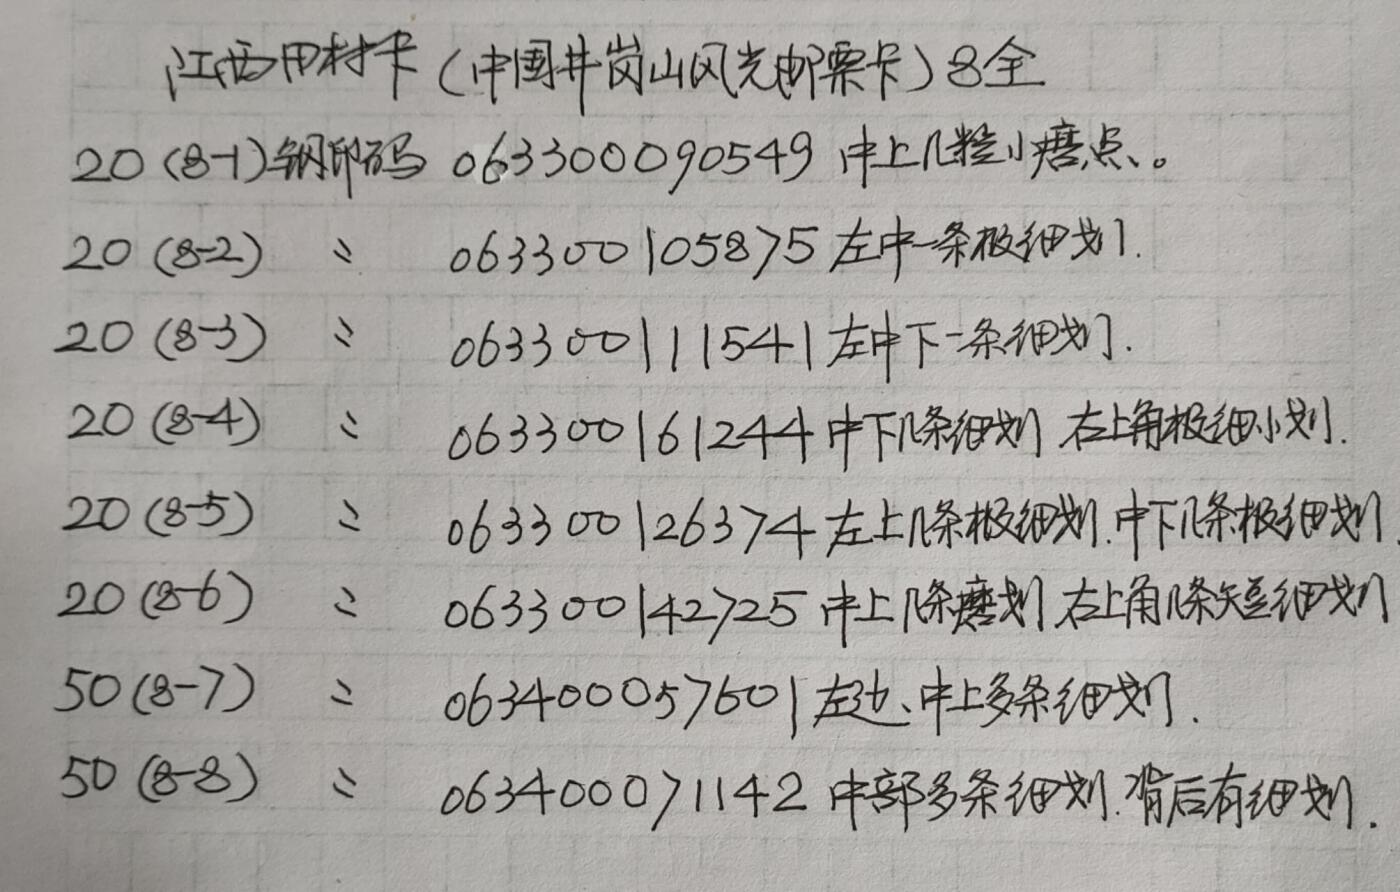 江西田村卡(中国井岗山风光邮票卡)8全
20(8-1)钢印码 063300090549 中上几粒小磨点。
20(8-2) 〃 063300105875 左中一条极细划.
20(8-3) 〃 063300111541 左中下一条细划.
20(8-4) 〃 063300161244 中下几条细划 右上角极细小划.
20(8-5) 〃 063300126374 左上几条极细划.中下几条极细划.
20(8-6) 〃 063300142725 中上几条磨划 右上角几条短细划
50(8-7) 〃 063400057601 左边、中上多条细划.
50(8-8) 〃 063400071142 中部多条细划.背后有细划.